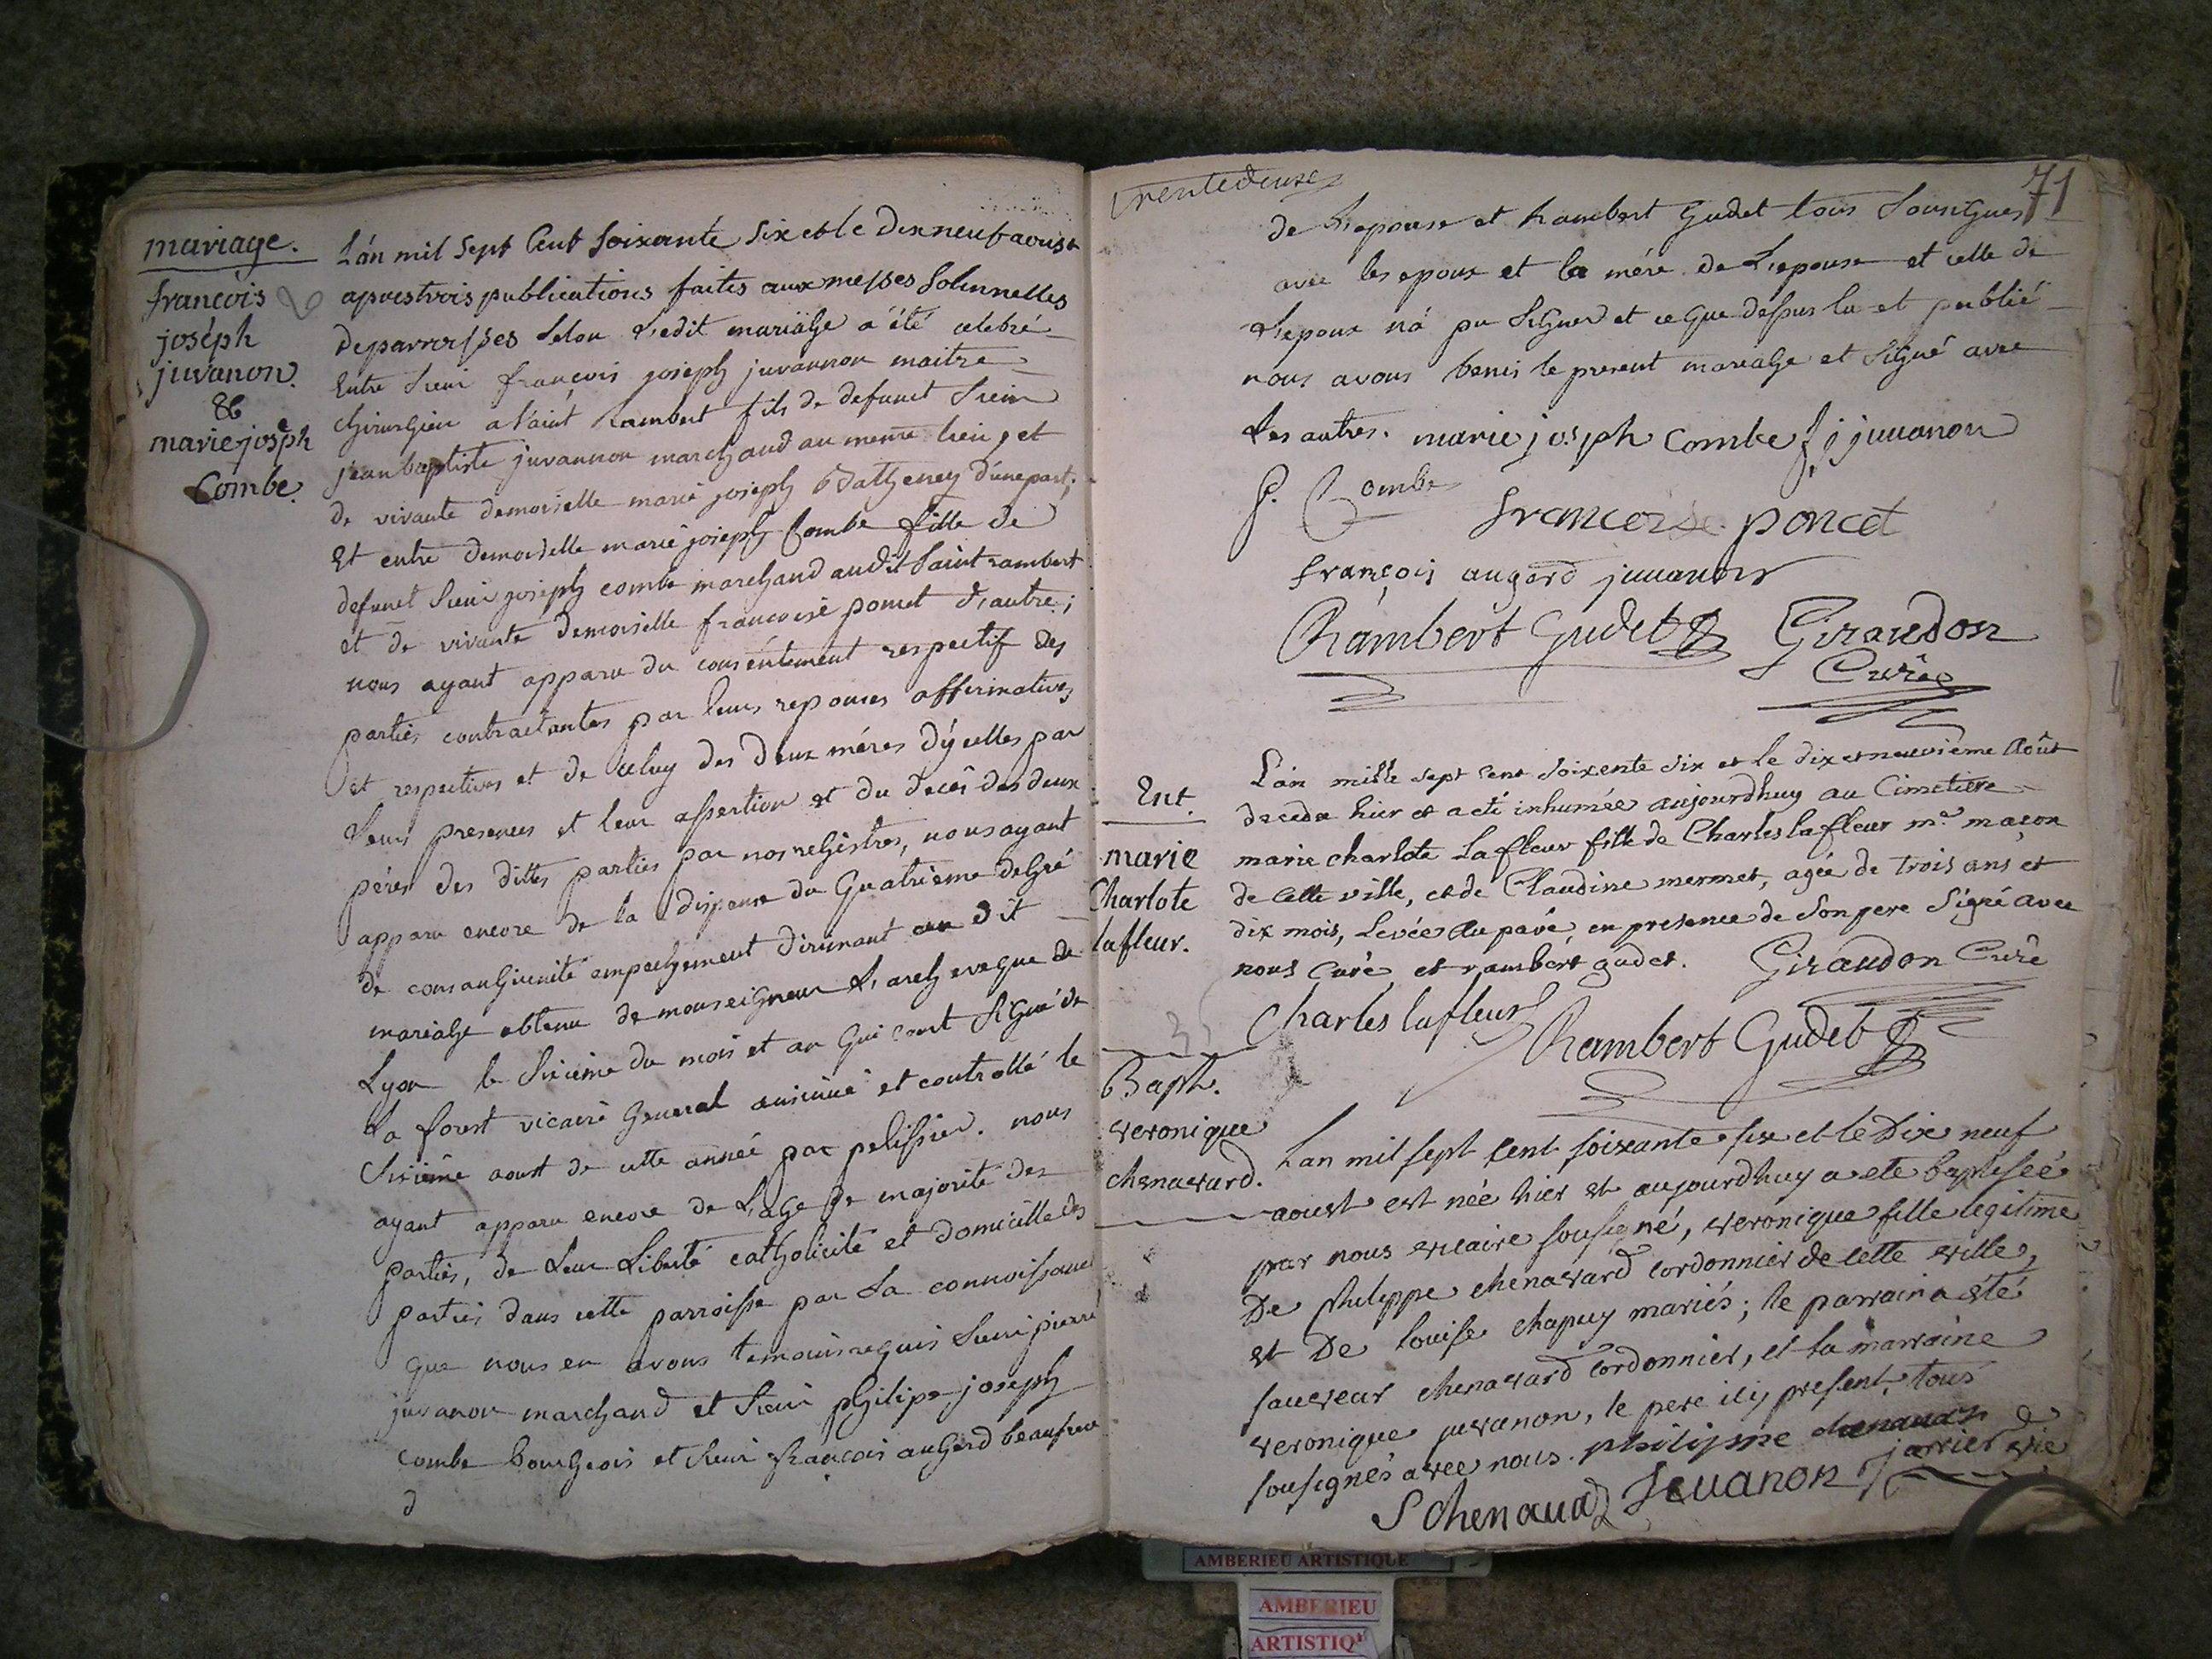 mariage.
francois
joseph
juvanon
&
marie joseph
Combe.
L'an mil sept Cent soixante six et le dix neuf aoust
apres trois publications faites aux messes solennelles
de parroisses selon L'edit mariage a été celebré
Entre Sieur françois joseph juvannon maitre
chirurgien a Saint Rambert fils de defunct Sieur
jean baptiste juvannon marchand au meme lieu, et
de vivante demoiselle marie joseph Batheney d'une part;
Et entre demoiselle marie joseph Combe fille de
defunct Sieur joseph combe marchand audit Saint rambert
et de vivante demoiselle francoise poncet d'autre;
nous ayant apparu du consentement respectif des
parties contractantes par leurs reponses affirmatives
et respectives et de celuy des deux méres d'ycelles par
leurs presences et leur assertion et du decés des deux
péres des dittes parties par nos registres, nous ayant
apparu encore de la dispense du quatrieme degré
de consanguinité empechement dirimant au dit
mariage obtenu de monseigneur L'archeveque de
Lyon le sixieme du mois et an qui court signé de
La forest vicaire General insinué et controllé le
sixième aoust de cette année par pelissier. nous
ayant apparu encore de L'age de majorité des
parties, de leur Liberté catholicité et domicille des
parties dans cette parroisse par la connoissance
que nous en avons temoins requis Sieur pierre
juvanon marchand et Sieur philipe joseph
combe bourgeois et Sieur francois augerd beaufrere
d
trentedeuxe
71
de L'epouse et Rambert Gudet tous sousignés
avec les epoux et la mére de L'epouse et celle de
L'epoux n'a pu signer et ce que dessus lu et publié
nous avons benis le present mariage et signé avec
Les autres. marie joseph Combe f j juvanon
P. Combe
francoise poncet
françois augerd juvanon
Rambert Gudet Giraudon
Curé
Ent.
marie
Charlote
lafleur.
L'an mille sept cent soixente six et le dix et neuvième Août
decedée hier et a eté inhumée aujourdhuy au Cimetiere
marie charlote lafleur fille de Charles lafleur me maçon
de cette ville, et de Claudine mermet, agée de trois ans et
dix mois, levée du pavé, en presence de son pere signé avec
nous Curé, et rambert gudet. Giraudon Curé
Charles lafleur
Rambert Gudet
Bapt.
veronique
chenavard.
Lan mil sept cent soixante six et le Dix neuf
aoust est née hier et aujourdhuy a ete baptisée
par nous vicaire sousigné, veronique fille legitime
De philippe chenavard cordonnier de cette ville,
et De louise chapuy mariés; le parrain a été
sauveur chenavard cordonnier, et la marraine
veronique juvanon, le pere icy present, tous
sousignés avec nous. philippe chenavar
S Chenavad Jeuanon jarrier vic
AMBERIEU ARTISTIQUE
AMBERIEU
ARTISTIQ